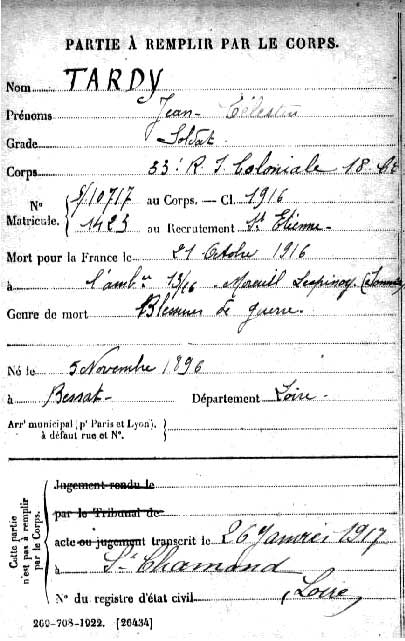 PARTIE À REMPLIR PAR LE CORPS.
Nom TARDY
Prénoms Jean - Célestin
Grade Soldat.
Corps 33e R. I. Coloniale 18e Cie
N° Matricule. { S/10717 au Corps. — Cl. 1916
1423 au Recrutement St Etienne -
Mort pour la France le 21 Octobre 1916
à l'amb.ce 13/16 Moreuil (Somme)
Genre de mort Blessures de guerre.
Né le 5 Novembre 1896
à Bessat - Département Loire -
Arrt municipal (pr Paris et Lyon),
à défaut rue et N°.
Cette partie n'est pas à remplir par le Corps.
Jugement rendu le
par le Tribunal de
acte ou jugement transcrit le 26 Janvier 1917
à St Chamond
(Loire)
N° du registre d'état civil
269-708-1922. [26434]